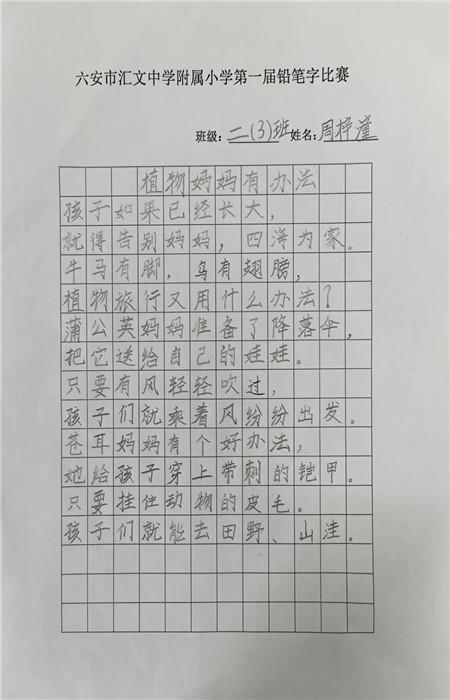 六安市汇文中学附属小学第一届铅笔字比赛
班级：二(3)班 姓名：周梓潼
植物妈妈有办法
孩子如果已经长大，
就得告别妈妈，四海为家。
牛马有脚，鸟有翅膀，
植物旅行又用什么办法？
蒲公英妈妈准备了降落伞，
把它送给自己的娃娃。
只要有风轻轻吹过，
孩子们就乘着风纷纷出发。
苍耳妈妈有个好办法，
她给孩子穿上带刺的铠甲。
只要挂住动物的皮毛。
孩子们就能去田野、山洼。